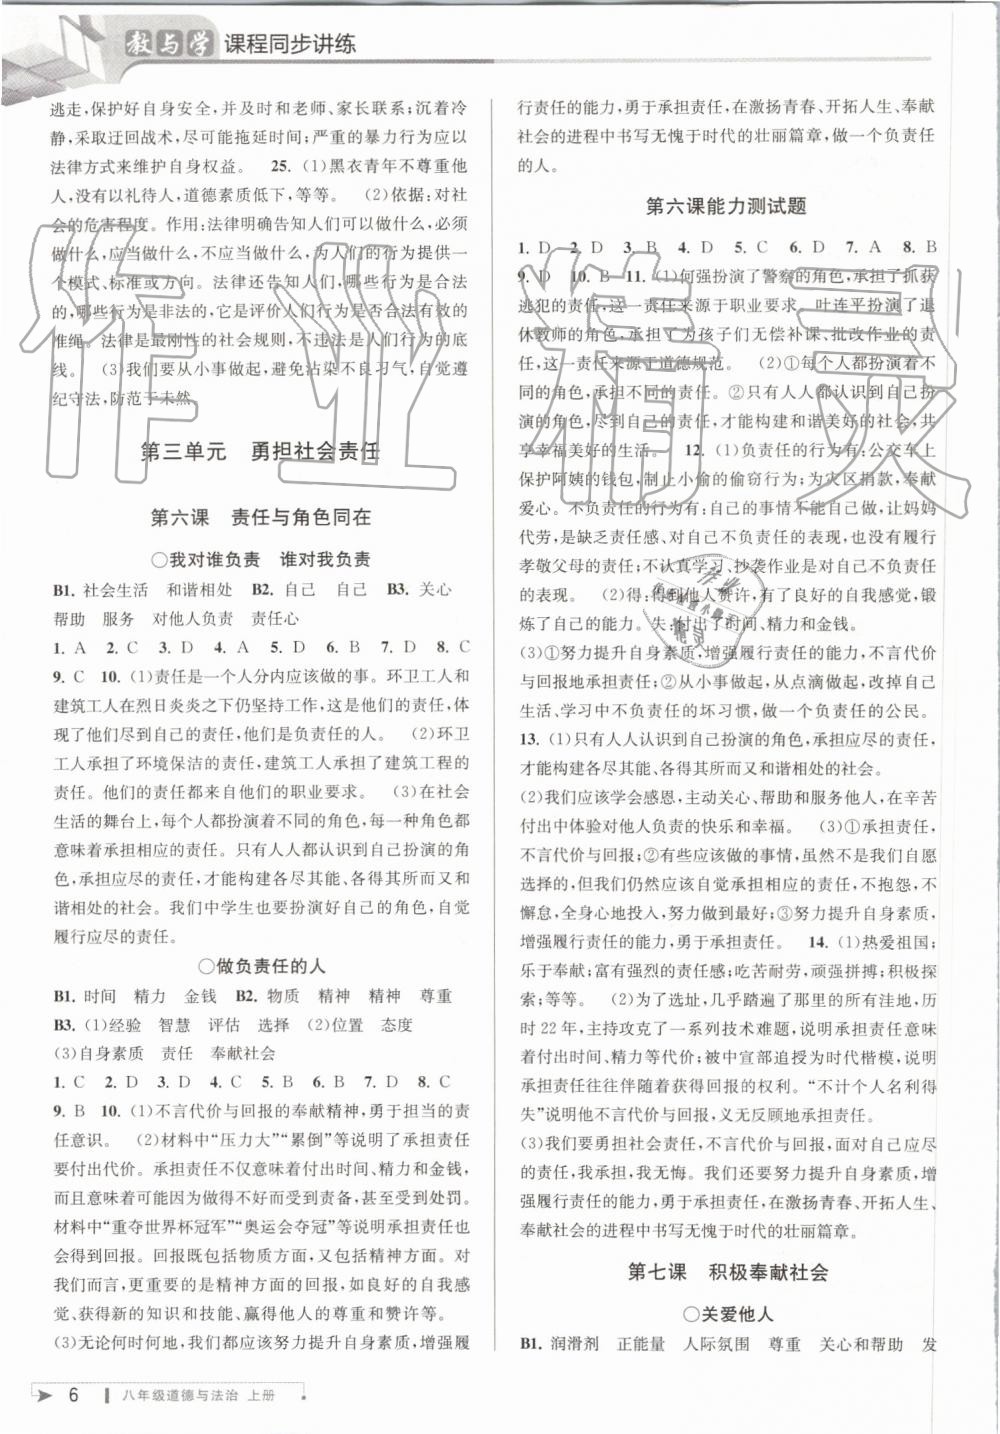 教与学 课程同步讲练
逃走,保护好自身安全,并及时和老师、家长联系;沉着冷
静,采取迂回战术,尽可能拖延时间;严重的暴力行为应以
法律方式来维护自身权益。 25. (1)黑衣青年不尊重他
人,没有以礼待人,道德素质低下,等等。 (2)依据:对社
会的危害程度。作用:法律明确告知人们可以做什么,必须
做什么,应当做什么,不应当做什么,为人们的行为提供一
个模式、标准或方向。法律还告知人们,哪些行为是合法
的,哪些行为是非法的,它是评价人们行为是否合法有效的
准绳。法律是最刚性的社会规则,不违法是人们行为的底
线。 (3)我们要从小事做起,避免沾染不良习气,自觉遵
纪守法,防范于未然。
第三单元 勇担社会责任
第六课 责任与角色同在
○我对谁负责 谁对我负责
B1. 社会生活 和谐相处 B2. 自己 自己 B3. 关心
帮助 服务 对他人负责 责任心
1. A 2. C 3. D 4. A 5. D 6. B 7. D 8. C
9. C 10. (1)责任是一个人分内应该做的事。环卫工人和
建筑工人在烈日炎炎之下仍坚持工作,这是他们的责任,体
现了他们尽到自己的责任,他们是负责任的人。 (2)环卫
工人承担了环境保洁的责任,建筑工人承担了建筑工程的
责任。他们的责任都来自他们的职业要求。 (3)在社会
生活的舞台上,每个人都扮演着不同的角色,每一种角色都
意味着承担相应的责任。只有人人都认识到自己扮演的角
色,承担应尽的责任,才能构建各尽其能、各得其所而又和
谐相处的社会。我们中学生也要扮演好自己的角色,自觉
履行应尽的责任。
○做负责任的人
B1. 时间 精力 金钱 B2. 物质 精神 精神 尊重
B3. (1)经验 智慧 评估 选择 (2)位置 态度
(3)自身素质 责任 奉献社会
1. C 2. D 3. D 4. C 5. B 6. B 7. B 8. C
9. B 10. (1)不言代价与回报的奉献精神,勇于担当的责
任意识。 (2)材料中“压力大”“累倒”等说明了承担责任
要付出代价。承担责任不仅意味着付出时间、精力和金钱,
而且还意味着可能因做得不好而受到责备,甚至受到处罚。
材料中“重夺世界杯冠军”“奥运会夺冠”等说明承担责任
也会获得回报。回报既包括物质方面,又包括精神方面。对
我们而言,更重要的是一种精神方面的回报,如良好的自我感
觉、获得新的知识和技能、赢得他人的尊重和赞许等。
(3)无论何时何地,我们都应该努力提升自身素质,增强履
行责任的能力,勇于承担责任,在激扬青春、开拓人生、奉献
社会的进程中书写无愧于时代的壮丽篇章,做一个负责任
的人。
第六课能力测试题
1. D 2. D 3. B 4. D 5. C 6. D 7. A 8. B
9. D 10. B 11. (1)何强扮演了警察的角色,承担了抓获
逃犯的责任,这一责任来源于职业要求。叶连平扮演了退
休教师的角色,承担了为孩子们无偿补课、批改作业的责
任,这一责任来源于道德规范。 (2)①每个人都扮演着不
同的角色,承担不同的责任。②只有人人都认识到自己扮
演的角色,尽到自己的责任,才能构建和谐美好的社会,共
享幸福美好的生活。 12. (1)负责任的行为有:公交车上
保护阿姨的钱包,制止小偷的偷窃行为;为灾区捐款,奉献
爱心。不负责任的行为有:自己的事情不能自己做,让妈妈
代劳,是缺乏责任、对自己不负责任的表现,也没有履行
孝敬父母的责任;不认真学习、抄袭作业是对自己不负责任
的表现。 (2)得:得到他人赞许,有了良好的自我感觉,锻
炼了自己的能力。失:付出了时间、精力和金钱。
(3)①努力提升自身素质,增强履行责任的能力,不言代价
与回报地承担责任;②从小事做起,从点滴做起,改掉自己
生活、学习中不负责任的坏习惯,做一个负责任的公民。
13. (1)只有人人认识到自己扮演的角色,承担应尽的责任,
才能构建各尽其能、各得其所而又和谐相处的社会。
(2)我们应该学会感恩,主动关心、帮助和服务他人,在辛苦
付出中体验对他人负责的快乐和幸福。 (3)①承担责任,
不言代价与回报;②有些应该做的事情,虽然不是我们自愿
选择的,但我们仍然应该自觉承担相应的责任,不抱怨,不
懈怠,全身心地投入,努力做好;③努力提升自身素质,
增强履行责任的能力,勇于承担责任。 14. (1)热爱祖国;
乐于奉献;富有强烈的责任感;吃苦耐劳,顽强拼搏,积极探
索;等等。 (2)为了选址,几乎踏遍了那里的所有洼地,历
时 22 年,主持攻克了一系列技术难题,说明承担责任意味
着付出时间、精力等代价;被中宣部追授为时代楷模,说明
承担责任往往伴随着获得回报的权利。“不计个人名利得
失”说明他不言代价与回报,义无反顾地承担责任。
(3)我们要勇担社会责任,不言代价与回报,面对自己应尽
的责任,我承担,我无悔。我们还要努力提升自身素质,增
强履行责任的能力,勇于承担责任,在激扬青春、开拓人生、
奉献社会的进程中书写无愧于时代的壮丽篇章。
第七课 积极奉献社会
○关爱他人
B1. 润滑剂 正能量 人际氛围 尊重 关心和帮助 发
6 八年级道德与法治 上册
作业精灵